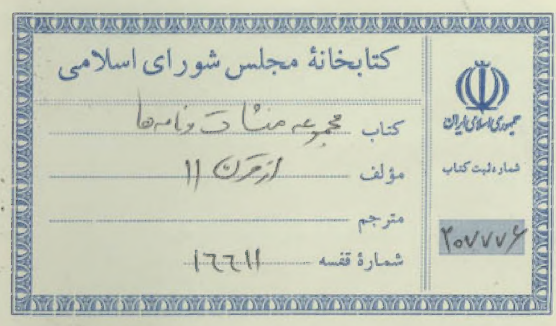 کتابخانهٔ مجلس شورای اسلامی
کتاب مجموعه منشآت و نامه‌ها
مؤلف از قرن ۱۱
مترجم
شمارهٔ قفسه ۱۶۶۱۱
جمهوری اسلامی ایران
شماره ثبت کتاب
۲۰۷۷۷۶